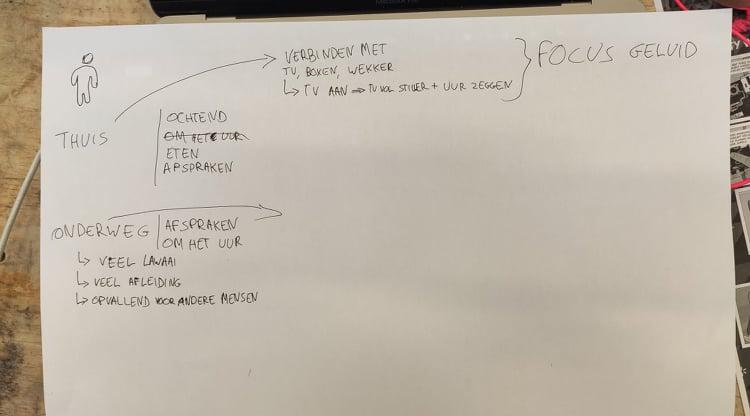 VERBINDEN MET
TV, BOXEN, WEKKER
↳ TV AAN ⇒ TV VOL STILLER + UUR ZEGGEN
FOCUS GELUID
THUIS
OCHTEND
OM HET UUR
ETEN
AFSPRAKEN
ONDERWEG
AFSPRAKEN
OM HET UUR
↳ VEEL LAWAAI
↳ VEEL AFLEIDING
↳ OPVALLEND VOOR ANDERE MENSEN